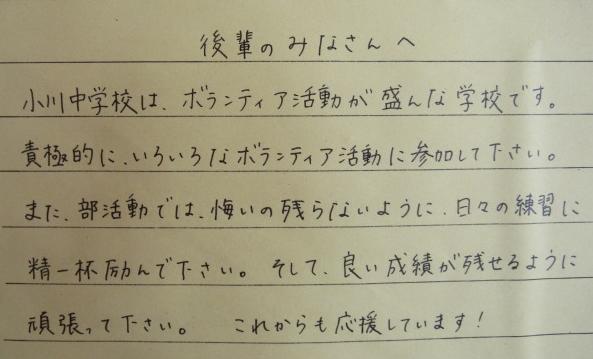 後輩のみなさんへ
小川中学校は、ボランティア活動が盛んな学校です。
責極的に、いろいろなボランティア活動に参加して下さい。
また、部活動では、悔いの残らないように、日々の練習に
精一杯励んで下さい。そして、良い成績が残せるように
頑張って下さい。 これからも応援しています!